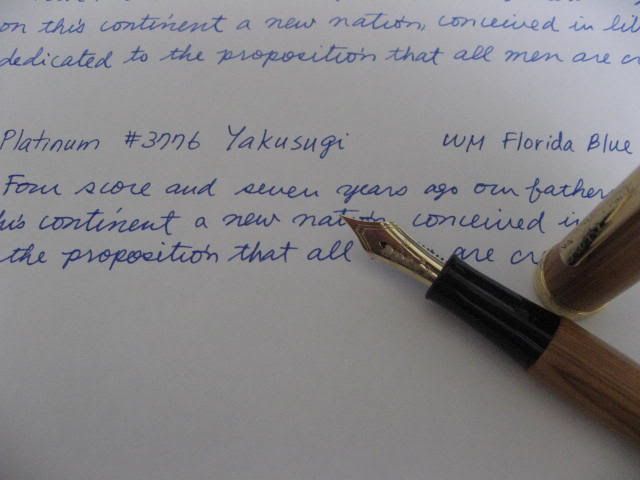 on this continent a new nation, conceived in
dedicated to the proposition that all men are
Platinum #3776 Yakusugi WM Florida Blue
Four score and seven years ago our father
his continent a new nation, conceived in
the proposition that all are cr